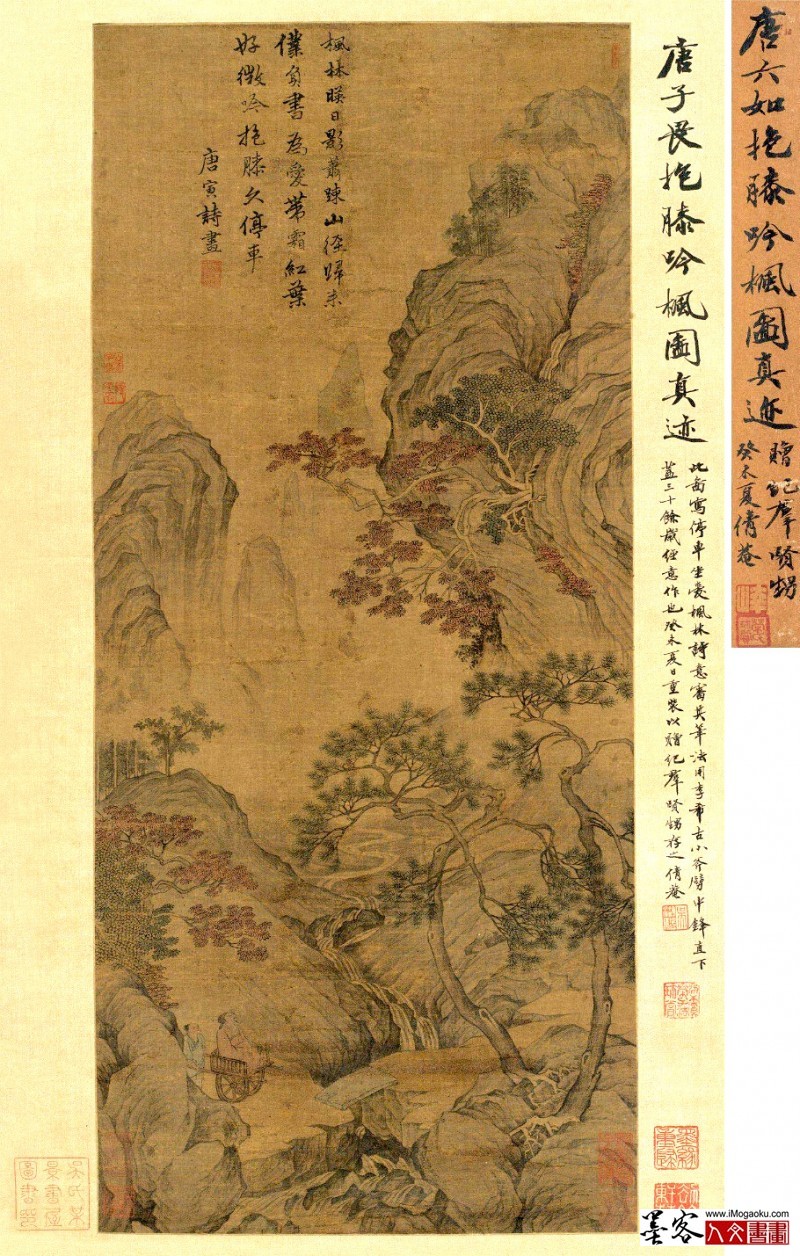 唐六如抱膝吟楓圖真迹
贈紀群賢甥
癸未夏倩菴
唐子畏抱膝吟楓圖真迹
此啚寫停車坐愛楓林詩意審其筆法用李希古小斧劈中鋒直下
蓋三十餘歲任意作也癸未夏日重裝以贈紀群賢甥存之倩菴
楓林暎日影蕭踈山徑歸来
僕負書為愛帶霜紅葉
好微吟抱膝久停車
唐寅詩畫
吳氏某
景書屋
圖書印
墨客
www.iMogaoku.com
人文書畫